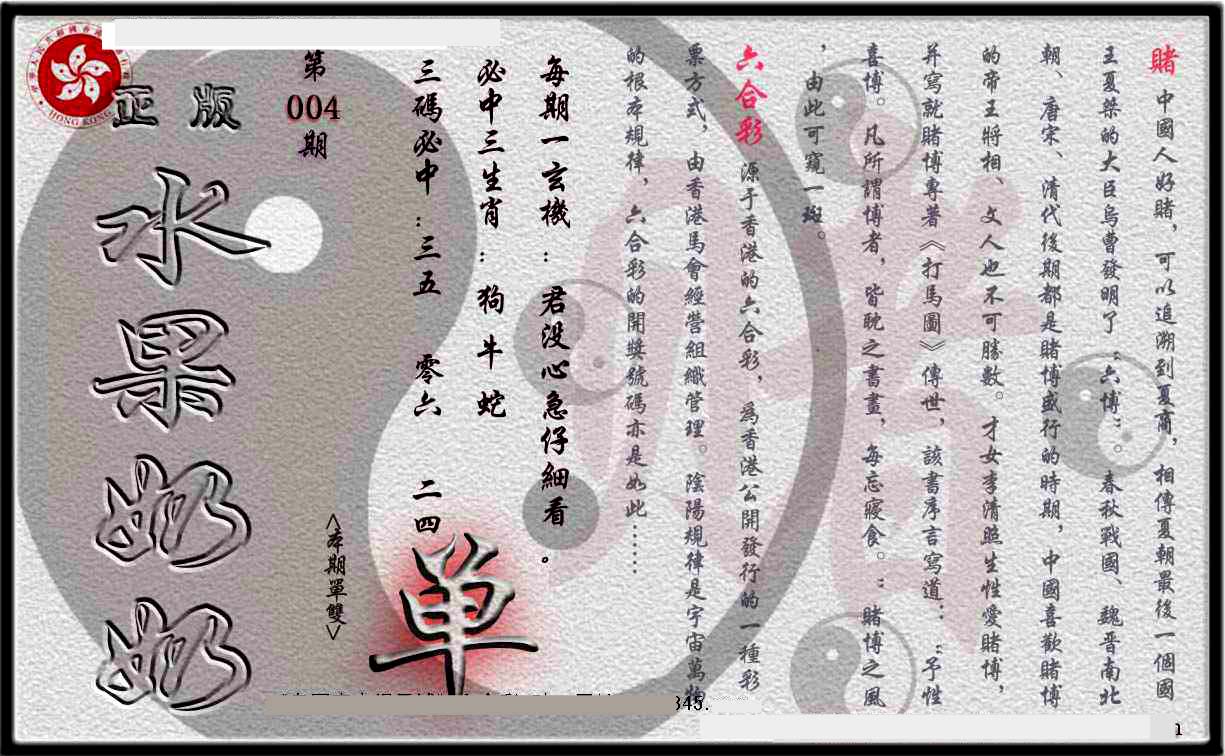 賭 中國人好賭，可以追溯到夏商，相傳夏朝最後一個國
王夏桀的大臣烏曹發明了“六博”。春秋戰國、魏晋南北
朝、唐宋、清代後期都是賭博盛行的時期，中國喜歡賭博
的帝王將相、文人也不可勝數。才女李清照生性愛賭博，
并寫就賭博專著《打馬圖》傳世，該書序言寫道：“予性
喜博。凡所謂博者，皆耽之書畫，每忘寢食。：賭博之風
，由此可窺一斑。
六合彩 源于香港的六合彩，為香港公開發行的一種彩
票方式，由香港馬會經營組織管理。陰陽規律是宇宙萬物
的根本規律，六合彩的開獎號碼亦是如此……
每期一玄機：君没心急仔細看。
必中三生肖：狗牛蛇
三碼必中：三五 零六 二四
單
<本期單雙>
第004期
正版
水果奶奶
HONG KONG
345.
1